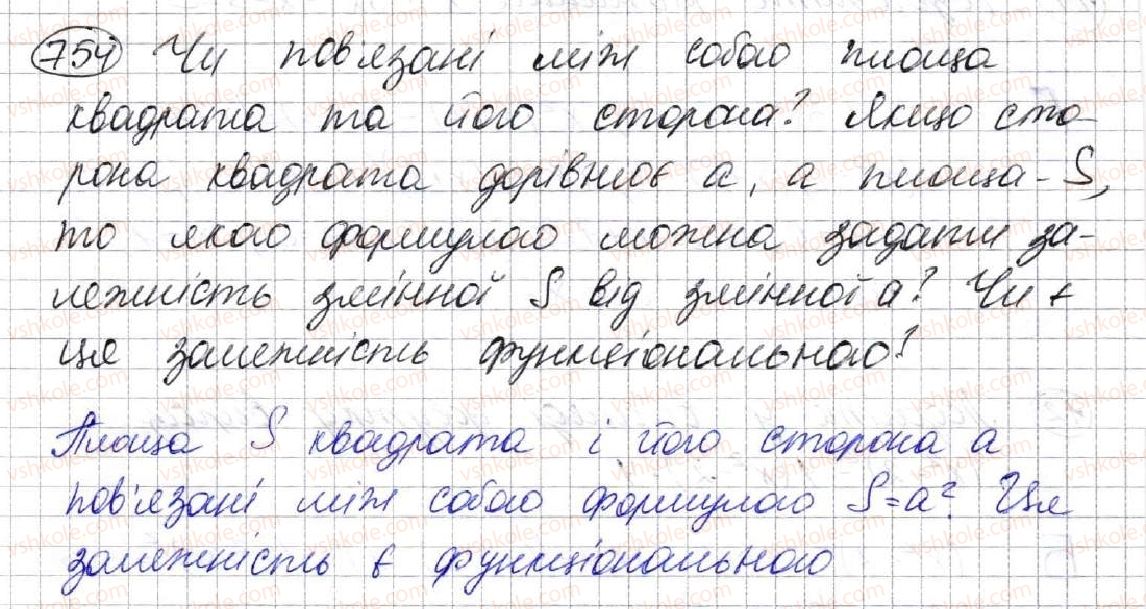 754 Чи пов'язані між собою площа
квадрата та його сторона? Якщо сто-
рона квадрата дорівнює a, а площа - S,
то якою формулою можна задати за-
лежність змінної S від змінної a? Чи є
ця залежність функціональною?
Площа S квадрата і його сторона a
пов'язані між собою формулою S=a². Ця
залежність є функціональною